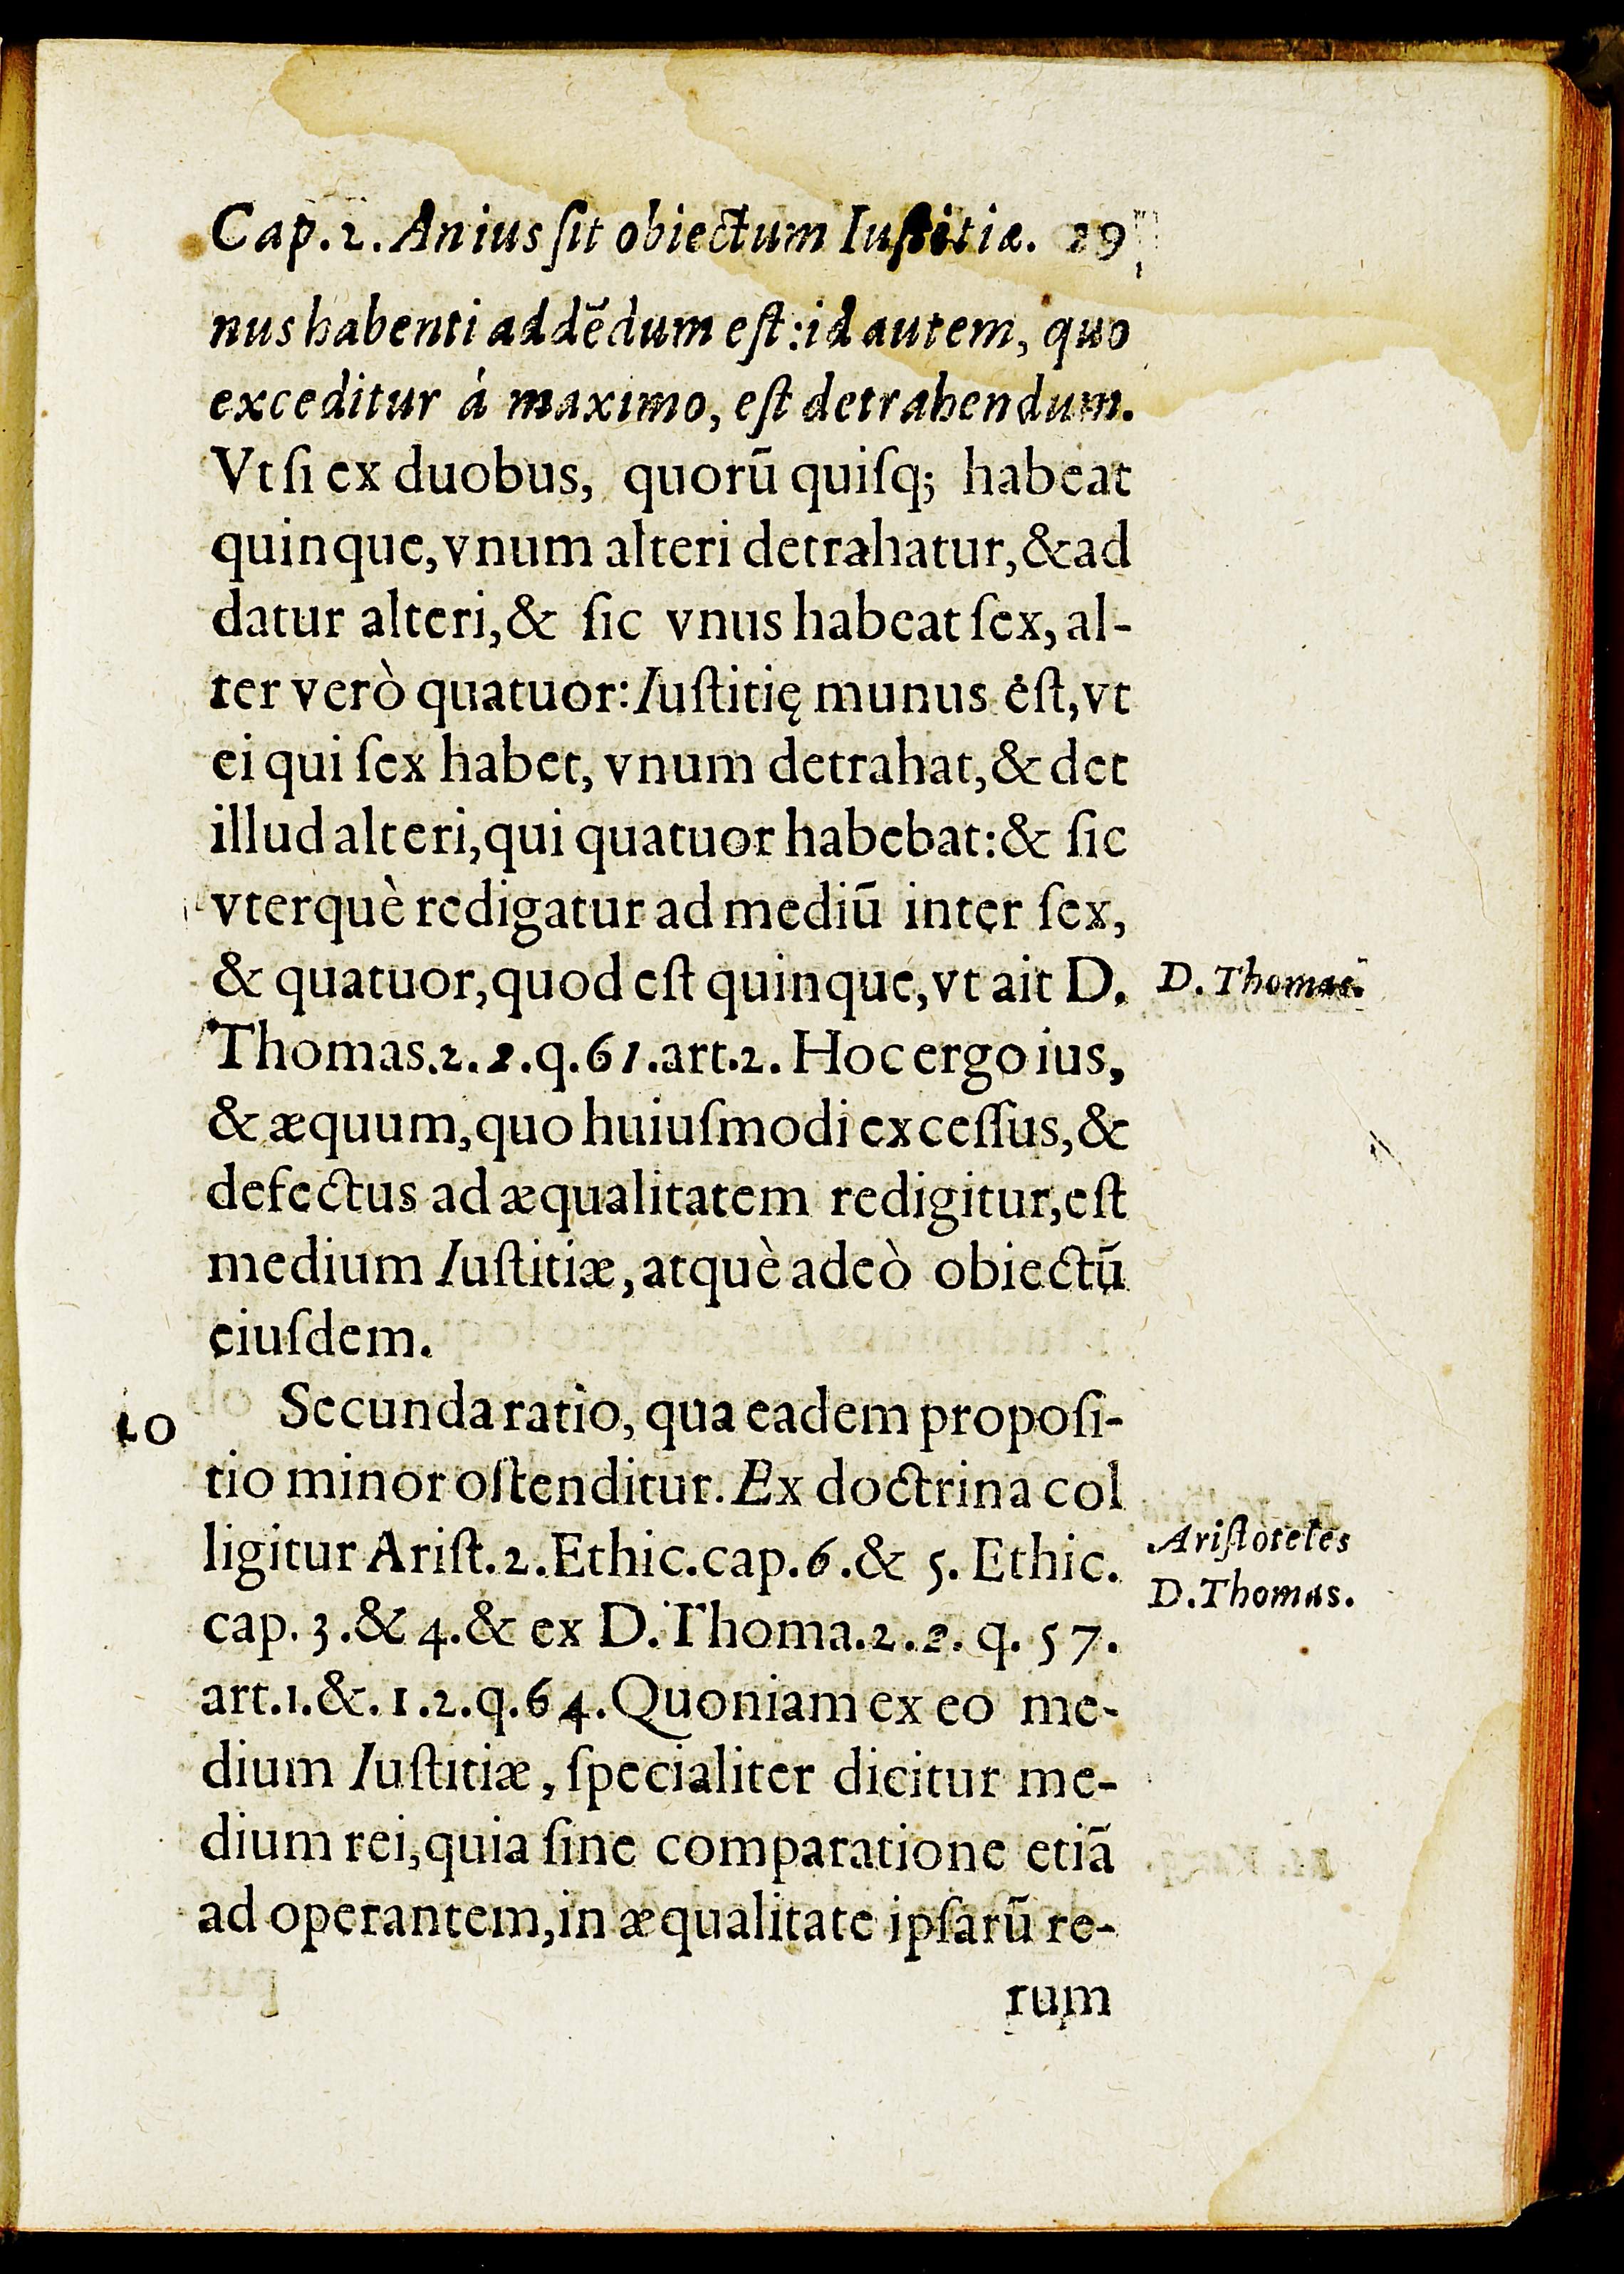 Cap.2. An ius ſit obiectum Iuſtitiæ. 29
nus habenti addẽdum eſt: id autem, quo
exceditur à maximo, eſt detrahendum.
Vt ſi ex duobus, quorū quiſq; habeat
quinque, vnum alteri detrahatur, & ad
datur alteri, & ſic vnus habeat ſex, al-
ter verò quatuor: Iuſtitię munus eſt, vt
ei qui ſex habet, vnum detrahat, & det
illud alteri, qui quatuor habebat: & ſic
vterquè redigatur ad mediū inter ſex,
& quatuor, quod eſt quinque, vt ait D.
D. Thomas.
Thomas.2.2.q.61.art.2. Hoc ergo ius,
& æquum, quo huiuſmodi exceſſus, &
defectus ad æqualitatem redigitur, eſt
medium Iuſtitiæ, atquè adeò obiectū
eiuſdem.
10 Secunda ratio, qua eadem propoſi-
tio minor oſtenditur. Ex doctrina col
ligitur Ariſt.2.Ethic.cap.6.& 5. Ethic.
Ariſtoteles
D. Thomas.
cap. 3.& 4.& ex D. Thoma.2.2. q. 57.
art.1.&.1.2.q.64. Quoniam ex eo me-
dium Iuſtitiæ, ſpecialiter dicitur me-
dium rei, quia ſine comparatione etiā
ad operantem, in æqualitate ipſarū re-
rum